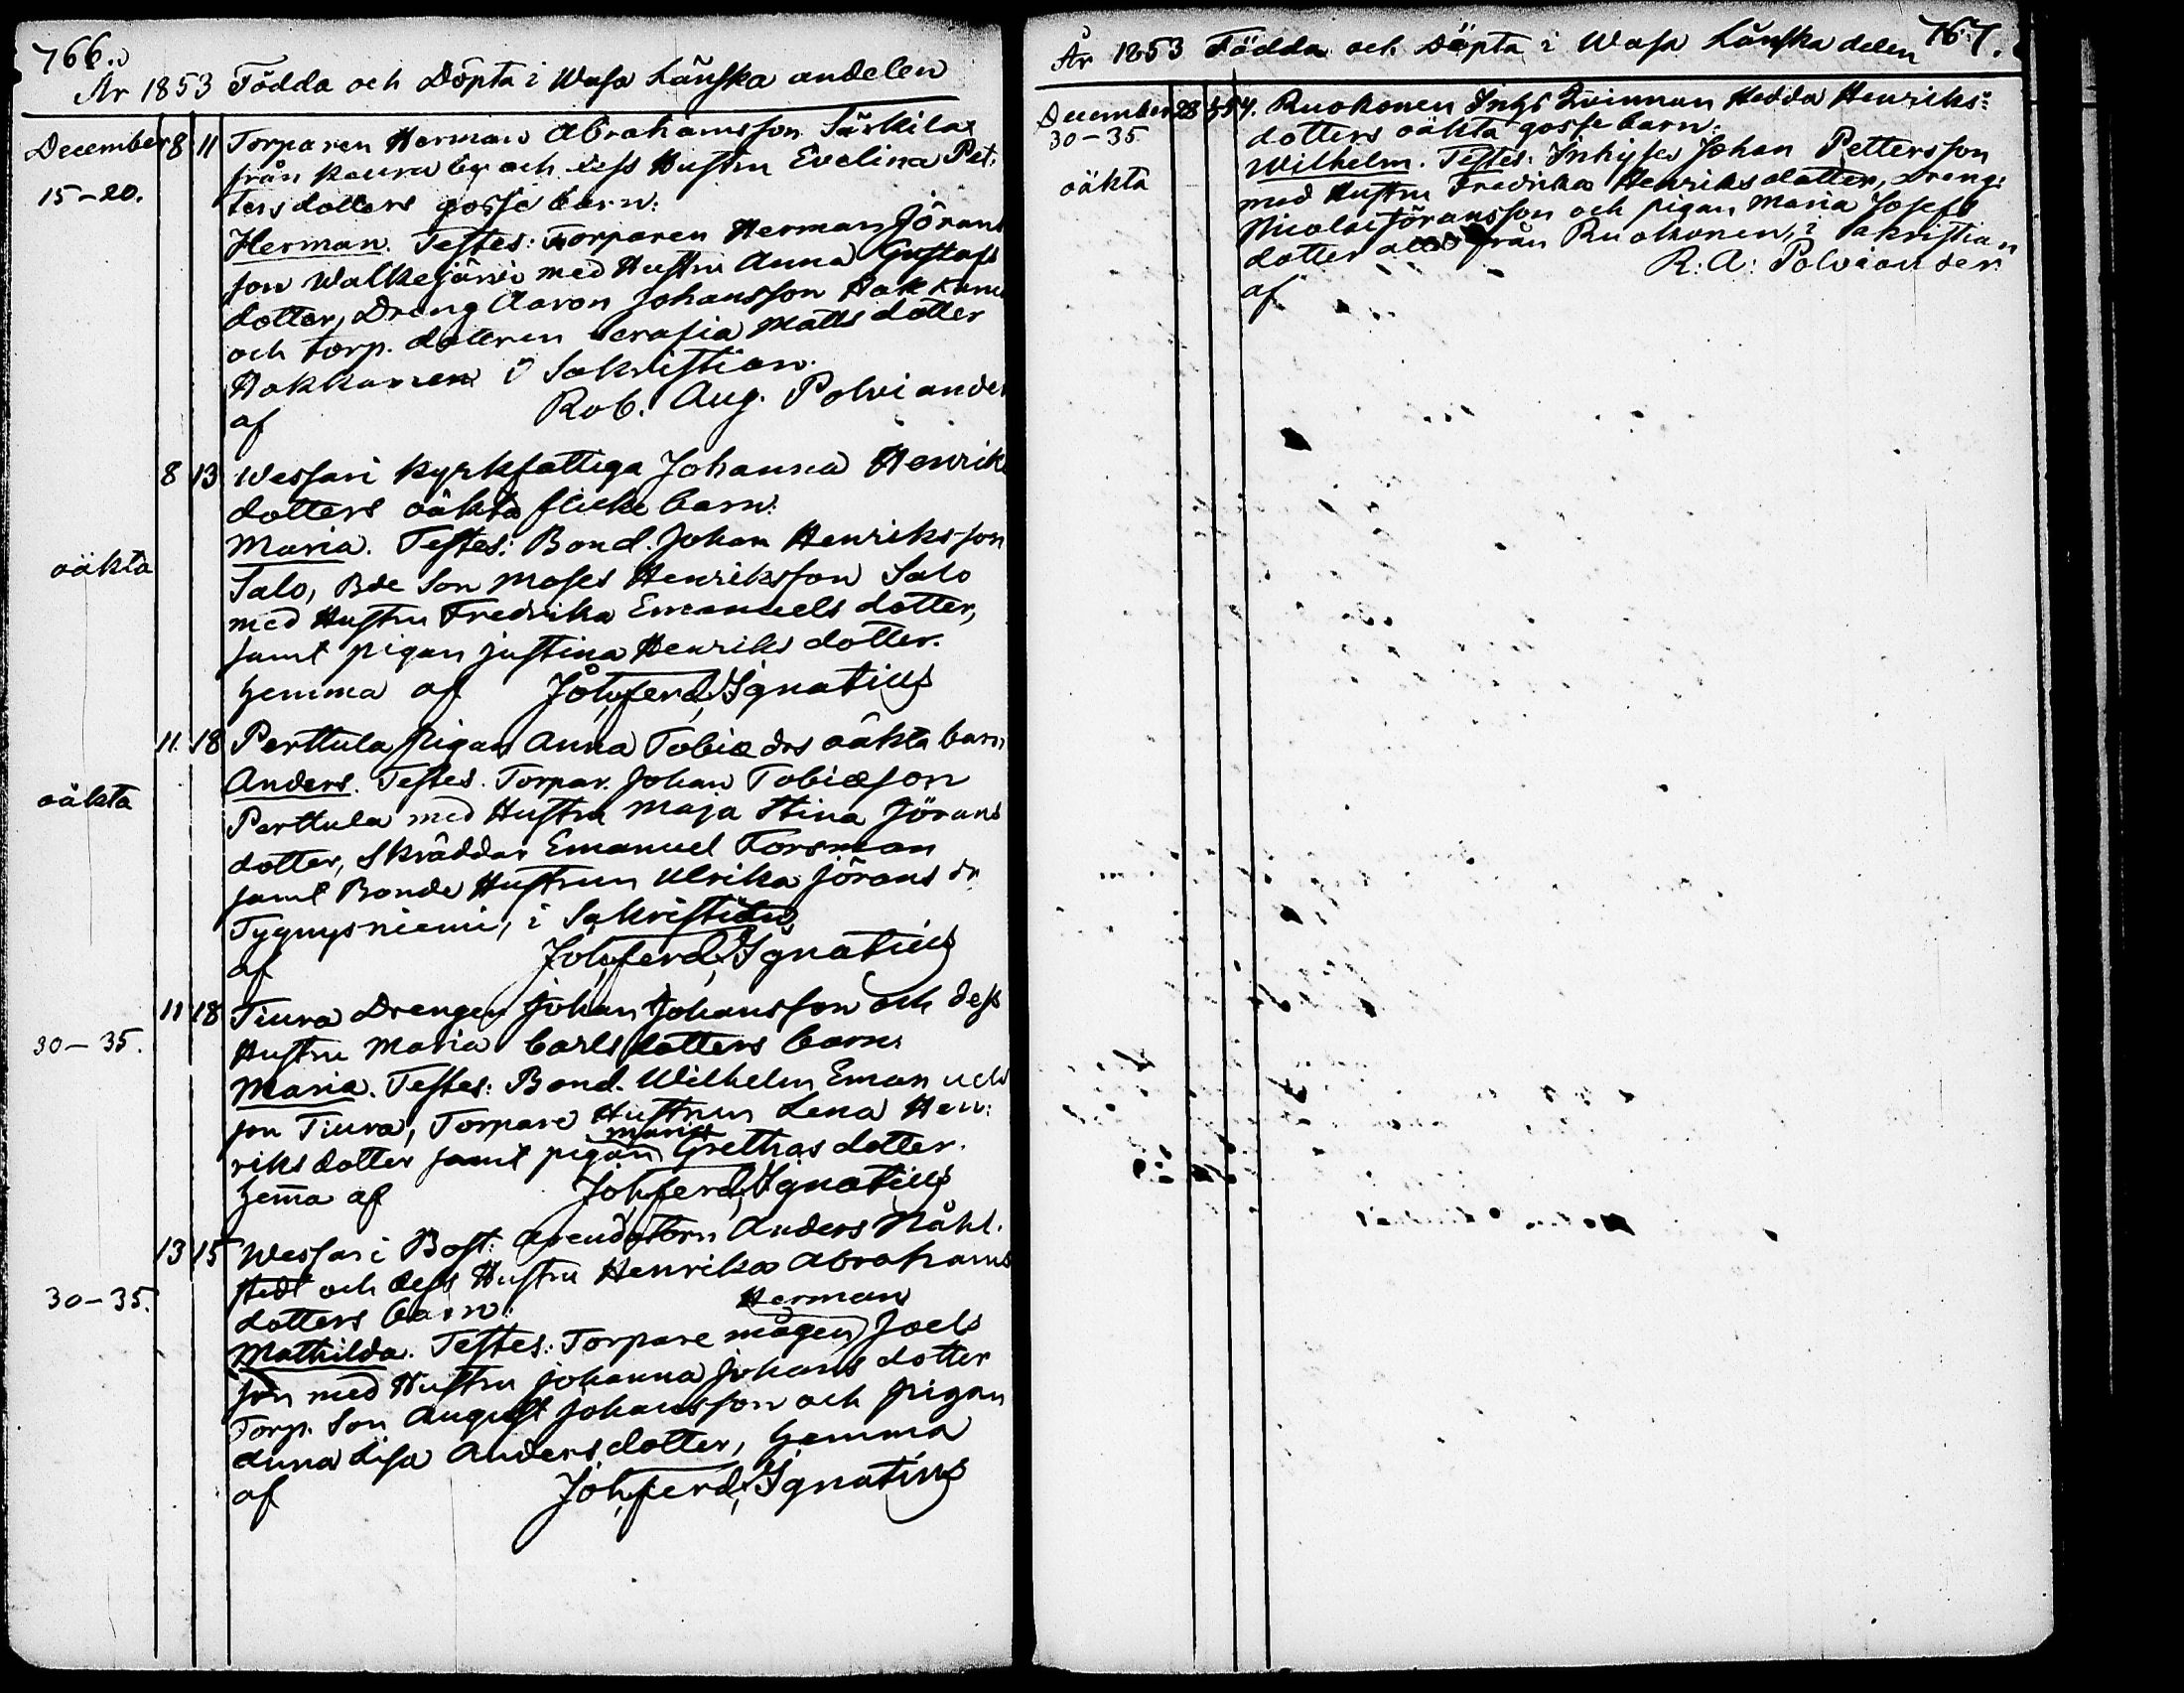 766.
År 1853 Födda och Döpta i Wasa Länska andelen
December 8 11 Torparen Herman Abrahamsson Särkilax
från Kaura by och dess Hustru Evelina Pet:
15–20. tersdotters gosse barn:
Herman. Testes: Torparen Herman Jörans
son Walkejärvi med Hustru Anna Gustafs
dotter, Dreng Aaron Johansson Hakkane
och torp. dotteren Serafia Mattsdotter
Hakkanen i Sakristian.
af Rob. Aug. Polviander
8 13 Wessari kyrkfattiga Johanna Henriks
dotters oäkta flicke barn:
oäkta Maria. Testes: Bond. Johan Henriksson
Salo, Bde Son Moses Henriksson Salo
med Hustru Fredrika Emanuels dotter,
samt pigan Justina Henriks dotter.
hemma af Joh. Ferd. Ignatius
11. 18 Perttula pigan Anna Tobiæ drs oäkta barn
oäkta Anders. Testes. Torpar. Johan Tobiæson
Perttula med Hustru Maja Stina Jörans
dotter, Skräddar Emanuel Forsman
samt Bonde Hustrun Ulrika Jörans dr
Tygnysniemi, i Sakristian
af Joh. Ferd. Ignatius
11 18 Tiura Drengen Johan Johansson och dess
30–35. Hustru Maria Carls dotters barn:
Maria. Testes: Bond. Wilhelm Emanuels
son Tiura, Torpare Hustrun Lena Hen:
riks dotter samt pigan Maria Grethas dotter.
hem̄a af Joh. Ferd. Ignatius
13 15 Wessari Bost: arendatorn Anders Ståhl.
30–35. stedt och dess Hustru Henrika Abrahams
dotters barn:
Mathilda. Testes: Torpare mågen Herman Joels
son med Hustru Johanna Johans dotter
Torp. Son August Johansson och pigan
Anna Lisa Anders dotter, hemma
af Joh. Ferd. Ignatius
767.
År 1853 Födda och Döpta i Wasa Länska delen
December 28 Ruokonen Inhs Qvinnan Hedda Henriks:
30–35. dotters oäkta gosse barn:
oäkta Wilhelm. Testes: Inhyses Johan Pettersson
med Hustru Fredrika Henriksdotter, Dreng:
Nicolai Jöransson och pigan Maria Josefs
dotter alla från Ruokonen, i Sakristian
af R: A: Polviander.